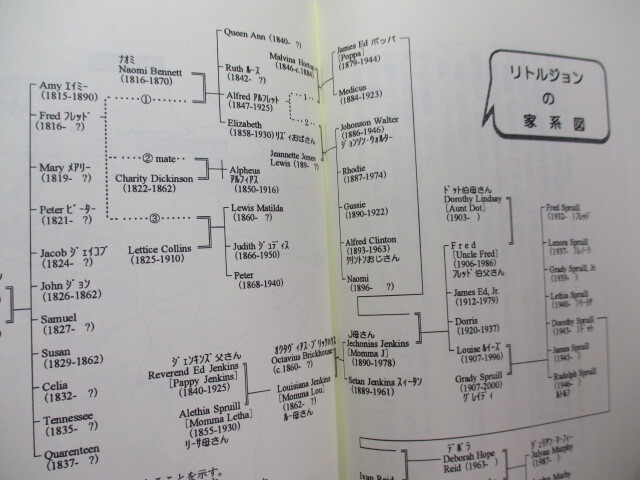 Amy エイミー
(1815-1890)
Fred フレッド
(1816- ?)
Mary メアリー
(1819- ?)
Peter ピーター
(1821- ?)
Jacob ジェイコブ
(1824- ?)
John ジョン
(1826-1862)
Samuel
(1827- ?)
Susan
(1829-1862)
Celia
(1832- ?)
Tennessee
(1835- ?)
Quarenteen
(1837- ?)
ナオミ
Naomi Bennett
(1816-1870)
①
② mate
Charity Dickinson
(1822-1862)
③
Lettice Collins
(1825-1910)
Queen Ann (1840- ?)
Ruth ルース
(1842- ?)
Alfred アルフレット
(1847-1925)
Elizabeth
(1858-1930) リズィおばさん
Alpheus
アルフィアス
(1850-1916)
Lewis Matilda
(1860- ?)
Judith ジュディス
(1866-1950)
Peter
(1868-1940)
Malvina
(1846-c.1884)
1
2
Jeannette Jones
Lewis (189- ?)
James Ed ポッパ
[Poppa]
(1879-1944)
Medicus
(1884-1923)
Johonson Walter
(1886-1946)
ジョンソン・ウォルター
Rhodie
(1887-1974)
Gussie
(1890-1922)
Alfred Clinton
(1893-1963)
クリントンおじさん
Naomi
(1896- ?)
リトルジョン
の
家系図
ドット伯母さん
Dorothy Lindsay
[Aunt Dot]
(1903- )
Fred
[Uncle Fred]
(1906-1986)
フレッド 伯父さん
James Ed, Jr.
(1912-1979)
Dorris
(1920-1937)
Louise ルイーズ
(1907-1996)
Grady Spruill
(1907-2000)
グレイディ
Fred Spruill
(1932- )フレッド
Lenora Spruill
Grady Spruill, Jr
(1939- )
Lethia Spruill
Dorothy Spruill
James Spruill
Rudolph Spruill
ジェンキンズ 父さん
Reverend Ed Jenkins
[Pappy Jenkins]
(1840-1925)
Alethia Spruill
[Momma Letha]
(1855-1930)
リーサ母さん
オクタヴィアス・ブリックハウス
Octavius Brickhouse
(c.1860- ?)
Louisiana Jenkins
[Momma Lou]
(1862- ?)
ルー母さん
J母さん
Jechonias Jenkins
[Momma J]
(1890-1978)
Setan Jenkins スィータン
(1889-1961)
デボラ
Deborah Hope
Reid (1963- )
ジュリアン・マーフィー
Julyan Murphy
(1987- )
Ivan Reid
ことを示す。